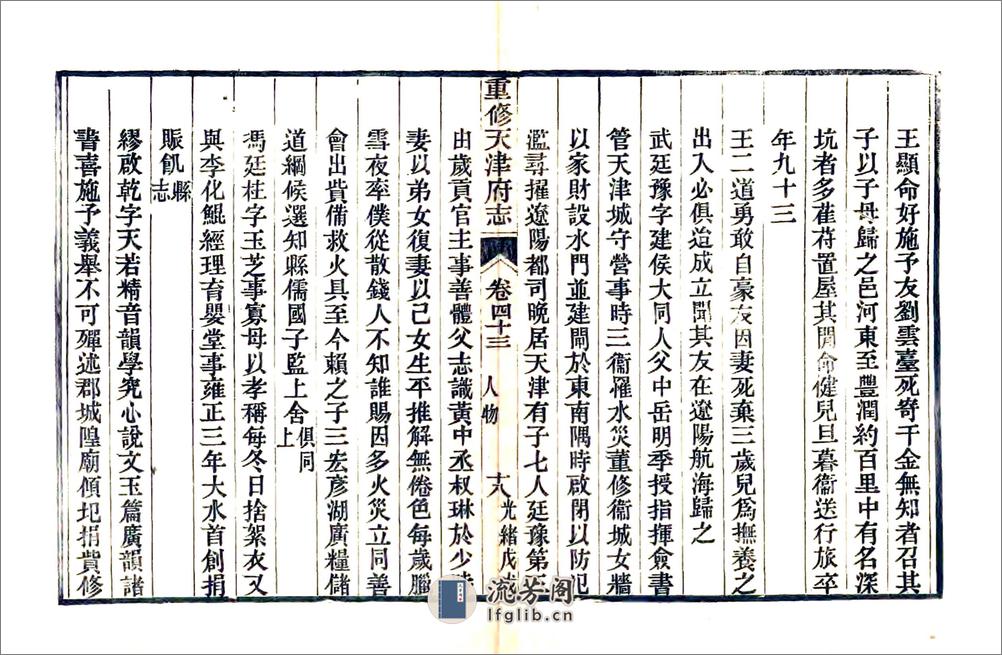 王顯命好施予友劉雲臺死寄千金無知者召其
子以子母歸之邑河東至豐潤約百里中有名深
坑者多萑苻置屋其間命健兒旦暮衞送行旅卒
年九十三
王二道勇敢自豪友因妻死棄三歲兒爲撫養之
出入必俱迨成立聞其友在遼陽航海歸之
武廷豫字建侯大同人父中岳明季授指揮僉書
管天津城守營事時三衞罹水災董修衞城女牆
以家財設水門並建閘於東南隅時啟閉以防氾
濫尋擢遼陽都司晚居天津有子七人廷豫第
重修天津府志
卷四十三
人物
十八
光緒戊戌
由歲貢官主事善體父志識黃中丞叔琳於少時
妻以弟女復妻以己女生平推解無倦色每歲臘
雪夜率僕從散錢人不知誰賜因多火災立同善
會出貲備救火具至今賴之子三宏彥湖廣糧儲
道綱候選知縣儒國子監上舍俱同上
馮廷桂字玉芝事寡母以孝稱每冬日捨絮衣又
與李化鯤經理育嬰堂事雍正三年大水首創捐
賑飢縣志
繆啟乾字天若精音韻學究心說文玉篇廣韻諸
書喜施予義舉不可殫述郡城隍廟傾圮捐貲修
流芳阁
lfglib.cn